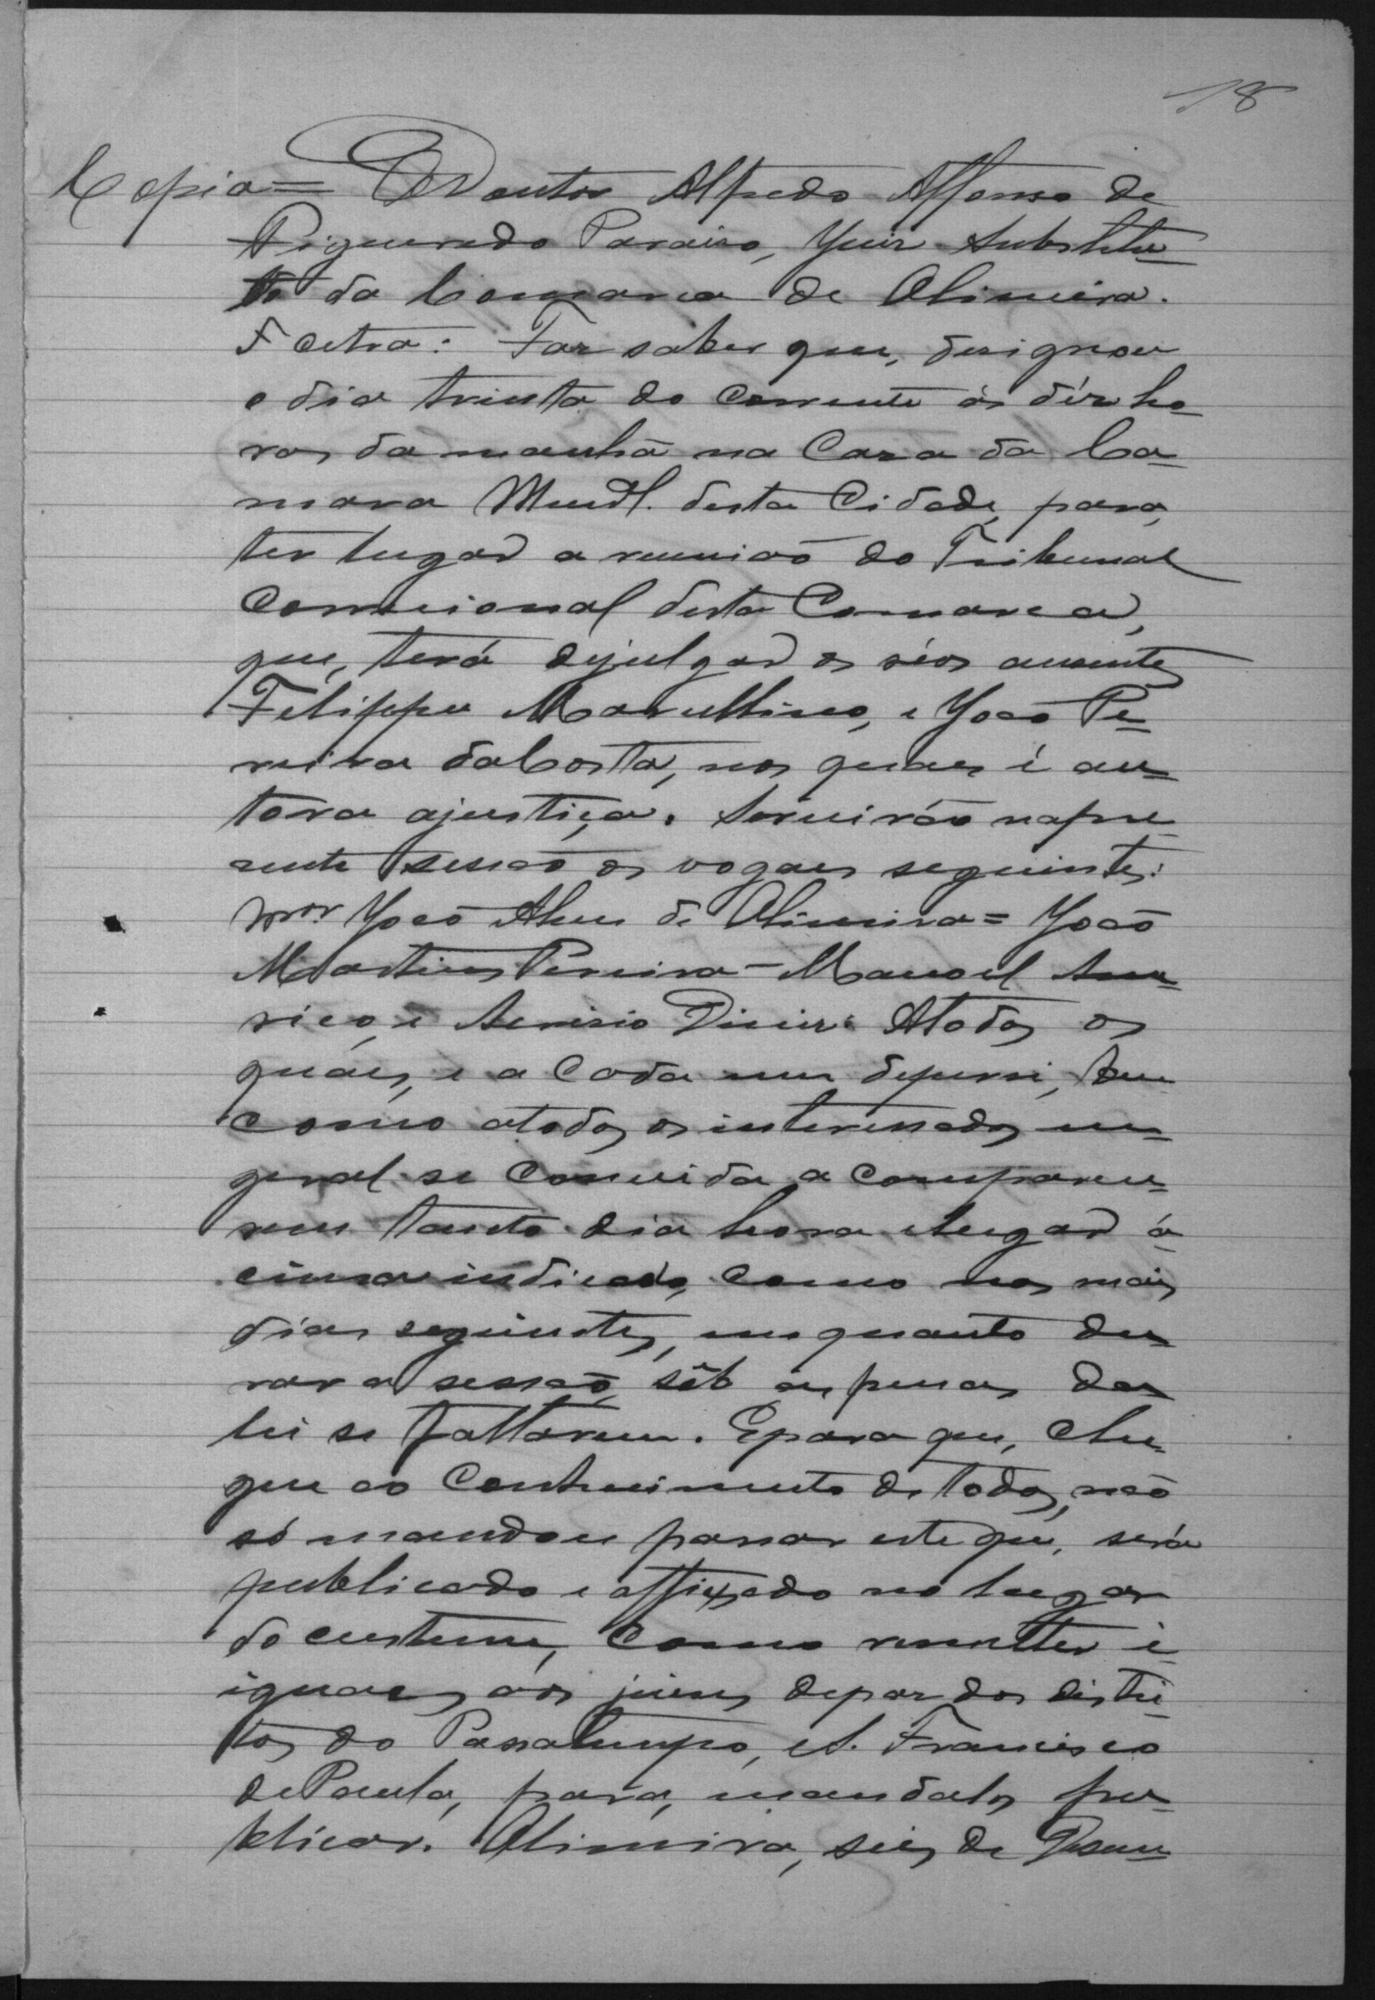 18
Copia = O Doutor Alfredo Affonso de
Figueredo Paraiso, Juiz Substitu-
to da Comarca de Oliveira.
F Cetra: Faz saber que, designou
o dia trinta do corrente ás déz ho-
ras da manhã na Caza da Ca-
mara Munal. desta Cidade, para,
ter lugar a reunião do Tribunal
Correicional desta Comarca,
que, terá dejulgar os réos ausentes
Filippe Marcellino, e João Pe-
reira daCosta, nos quaes é au-
tora ajustiça. Servirão napre-
sente sessão os vogaes seguintes:
João Alves de Oliveira = João
Martins Pereira - Manoel Ame-
rico, e Diniz. Atodos os
quáes, e a Cada um depersi, bem
como atodos os interessados em
geral se Convida a Comparece-
rem tanto dia hora elugar á
cima indicado, como nos mais
dias seguintes, em quanto du-
rar a sessão, sob as penas da
lei se faltarem. Epara que, che-
gue ao Conhecimento de todos, não
só mandou passar este que, será
publicado e affixado no lugar
do custume, Como remetter i-
iguaes aos juizes depaz dos distri-
tos do Passatempo, eS. Francisco
dePaula, para, mandalos pu-
blicar. Oliveira, seis de Desem-